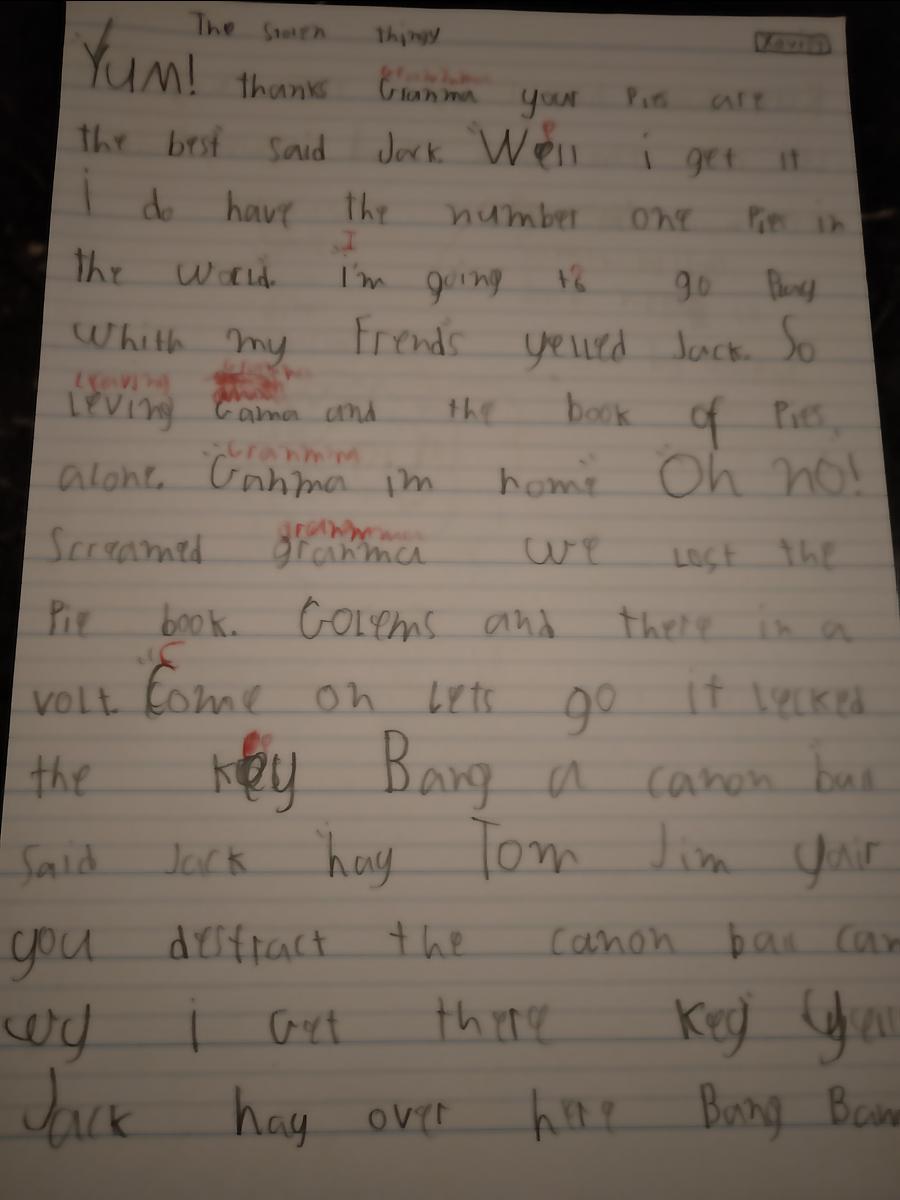 The stolen thingy
YUM! thanks Granma your Pies are
the best said Jack. Well i get it
i do have the number one Pies in
the world. I'm going to go Play
whith my Frends yelled Jack. So
leaving
Leving Gama and the book of Pies
Granmm
alone. Ganma im home Oh no!
granmma
Screamed granma we Lost the
Pie book. Golems and there in a
volt. Come on Lets go it Locked
the key Bang a canon ball
Said Jack hay Tom Jim yair
you destract the canon ball can
i Get there Key
Jack hay over here Bang Bang